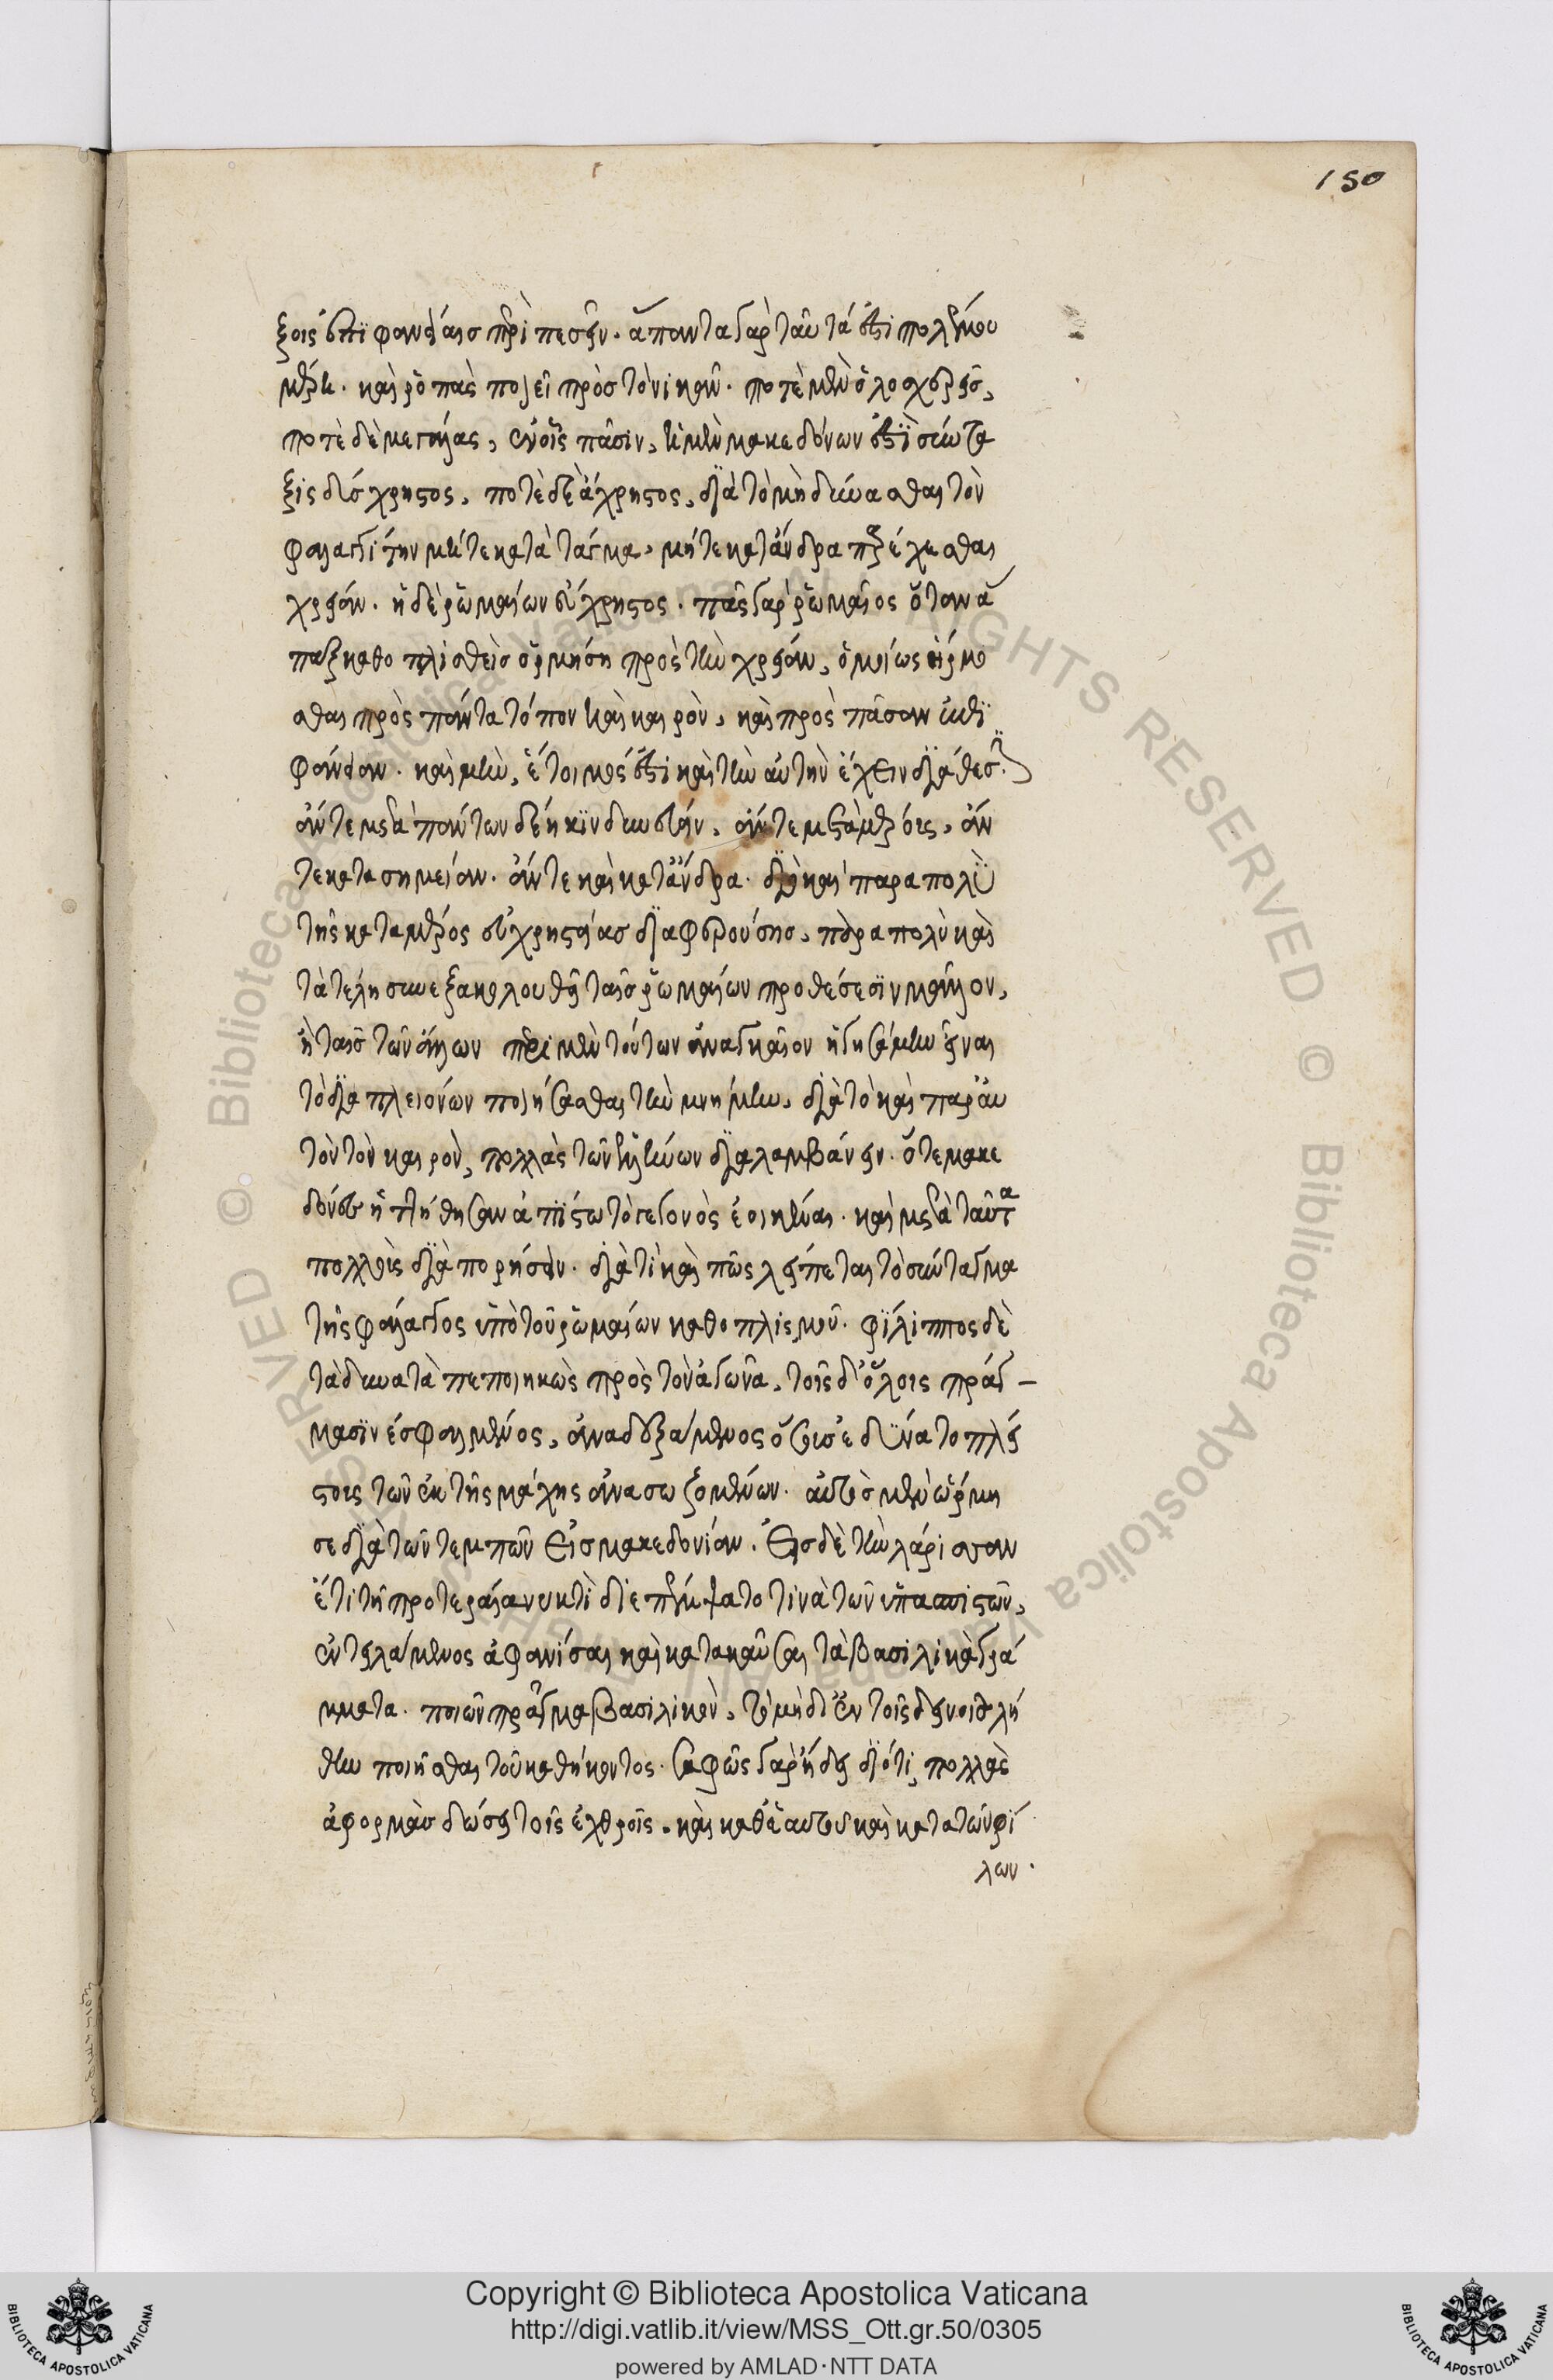 150
ξοις ἐπιφανείαις περιπεσεῖν. ἅπαντα γὰρ ταῦτά ἐστι πολέμου
μέρη. καὶ ῥοπὰς ποιεῖ πρὸς τὸ νικᾶν. ποτὲ μὲν ὁλοσχερεῖς,
ποτὲ δὲ μεγάλας, ἐν οἷς πᾶσιν, ἡ μὲν μακεδόνων ἐστὶ σύντα
ξις δύσχρηστος, ποτὲ δὲ ἄχρηστος, διὰ τὸ μὴ δύνασθαι τὸν
φαλαγγίτην μήτε κατὰ τάγμα, μήτε κατ' ἄνδρα παρέχεσθαι
χρείαν. ἡ δὲ ῥωμαίων εὔχρηστος. πᾶς γὰρ ῥωμαῖος ὅταν ἅ
παξ καθοπλισθεὶς ὁρμήσῃ πρὸς τὴν χρείαν, ὁμοίως ἥρμο
σθαι πρὸς πάντα τόπον καὶ καιρὸν, καὶ πρὸς πᾶσαν ἐπι
φάνειαν. καὶ μὴν, ἕτοιμός ἐστι καὶ τὴν αὐτὴν ἔχειν διάθεσιν
ἄν τε μετὰ πάντων δέῃ κινδυνεύειν, ἄν τε μετὰ μέρους, ἄν
τε κατὰ σημείαν. ἄν τε καὶ κατ' ἄνδρα. διὸ καὶ παρὰ πολὺ
τῆς κατὰ μέρος εὐχρηστίας διαφερούσης, παρὰ πολὺ καὶ
τὰ τέλη συνεξακολουθεῖ ταῖς ῥωμαίων προθέσεσιν μᾶλλον,
ἢ ταῖς τῶν ἄλλων περὶ μὲν τούτων ἀναγκαῖον ἡγησάμην εἶναι
τὸ διὰ πλειόνων ποιήσασθαι τὴν μνήμην, διὰ τὸ καὶ παρ' αὐ
τὸν τὸν καιρὸν, πολλὰς τῶν ἑλλήνων διαλαμβάνειν. ὅτε μακε
δόνες ἡττήθησαν ἀπίστῳ τὸ γεγονὸς ἐοικέναι. καὶ μετὰ ταῦτα
πολλοὺς διαπορήσειν. διὰ τί καὶ πῶς λείπεται τὸ σύνταγμα
τῆς φάλαγγος ὑπὸ τοῦ ῥωμαίων καθοπλισμοῦ. φίλιππος δὲ
τὰ δυνατὰ πεποιηκὼς πρὸς τὸν ἀγῶνα, τοῖς δ' ὅλοις πράγ–
μασιν ἐσφαλμένος, ἀναδεξάμενος ὅσους ἐδύνατο πλεί
στους τῶν ἐκ τῆς μάχης ἀνασωζομένων. αὐτὸς μὲν ὥρμη
σε διὰ τῶν τεμπῶν εἰς μακεδονίαν. εἰς δὲ τὴν λάρισσαν
ἔτι τῇ προτεραίᾳ νυκτὶ διεπέμψατο τινὰ τῶν ὑπασπιστῶν,
ἐντειλάμενος ἀφανίσαι καὶ κατακαῦσαι τὰ βασιλικὰ γρά
μματα. ποιῶν πρᾶγμα βασιλικὸν, τὸ μὴ δ' ἐν τοῖς δεινοῖς λή
θην ποιεῖσθαι τοῦ καθήκοντος. σαφῶς γὰρ ᾔδει διότι, πολλὰς
ἀφορμὰς δώσει τοῖς ἐχθροῖς. καὶ καθ' ἑαυτοῦ καὶ κατὰ τῶν φί
λων.
© Biblioteca Apostolica Vaticana ALL RIGHTS RESERVED
Copyright © Biblioteca Apostolica Vaticana
http://digi.vatlib.it/view/MSS_Ott.gr.50/0305
powered by AMLAD·NTT DATA
BIBLIOTECA APOSTOLICA VATICANA
BIBLIOTECA APOSTOLICA VATICANA